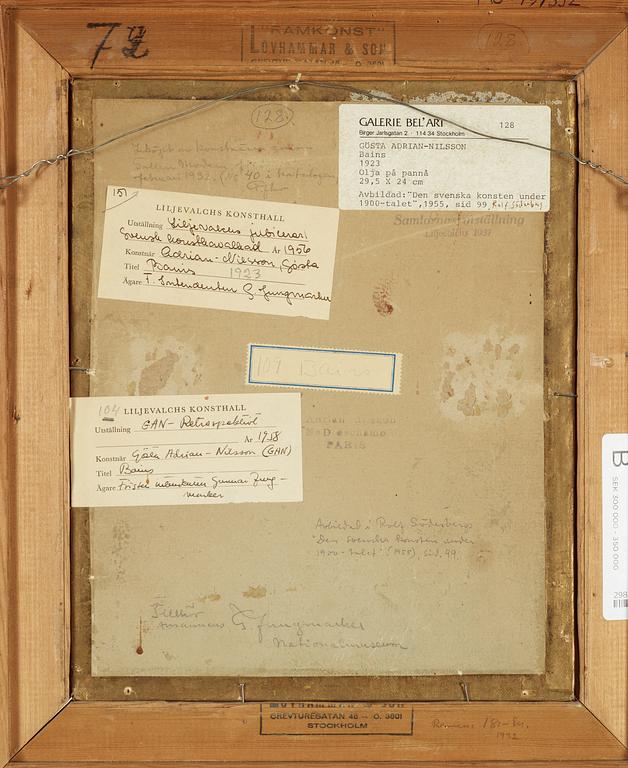 72
"RAMKONST"
LOVHAMMAR & SON
128
128
Tillhör
1932. (No 40 i katalogen
GALERIE BEL'ART
128
Birger Jarlsgatan 2 · 114 34 Stockholm
GÖSTA ADRIAN-NILSSON
Bains
1923
Olja på pannå
29,5 X 24 cm
Avbildad:"Den svenska konsten under
1900-talet",1955, sid 99 Rolf Söderberg
Liljevalchs 1937
151
LILJEVALCHS KONSTHALL
Utställning Liljevalchs jubilerar/
Svensk konstkavalkad År 1956
Konstnär Adrian-Nilsson, Gösta
Titel Bains 1923
Ägare F. Intendenten G. Jungmarker
109 Bains
104 LILJEVALCHS KONSTHALL
Utställning GAN - Retrospektivt
År 1958
Konstnär Gösta Adrian-Nilsson (GAN)
Titel Bains
Ägare Gunnar Jung-
marker
PARIS
Avbildad i Rolf Söderbergs
"Den svenska konsten under
1900-talet" (1955), sid. 99.
Tillhör
G Jungmarker
Nationalmuseum
B
SEK 300 000 - 350 000
298
LOVHAMMAR & SON
GREVTUREGATAN 46 — Ö. 3801
STOCKHOLM
1932